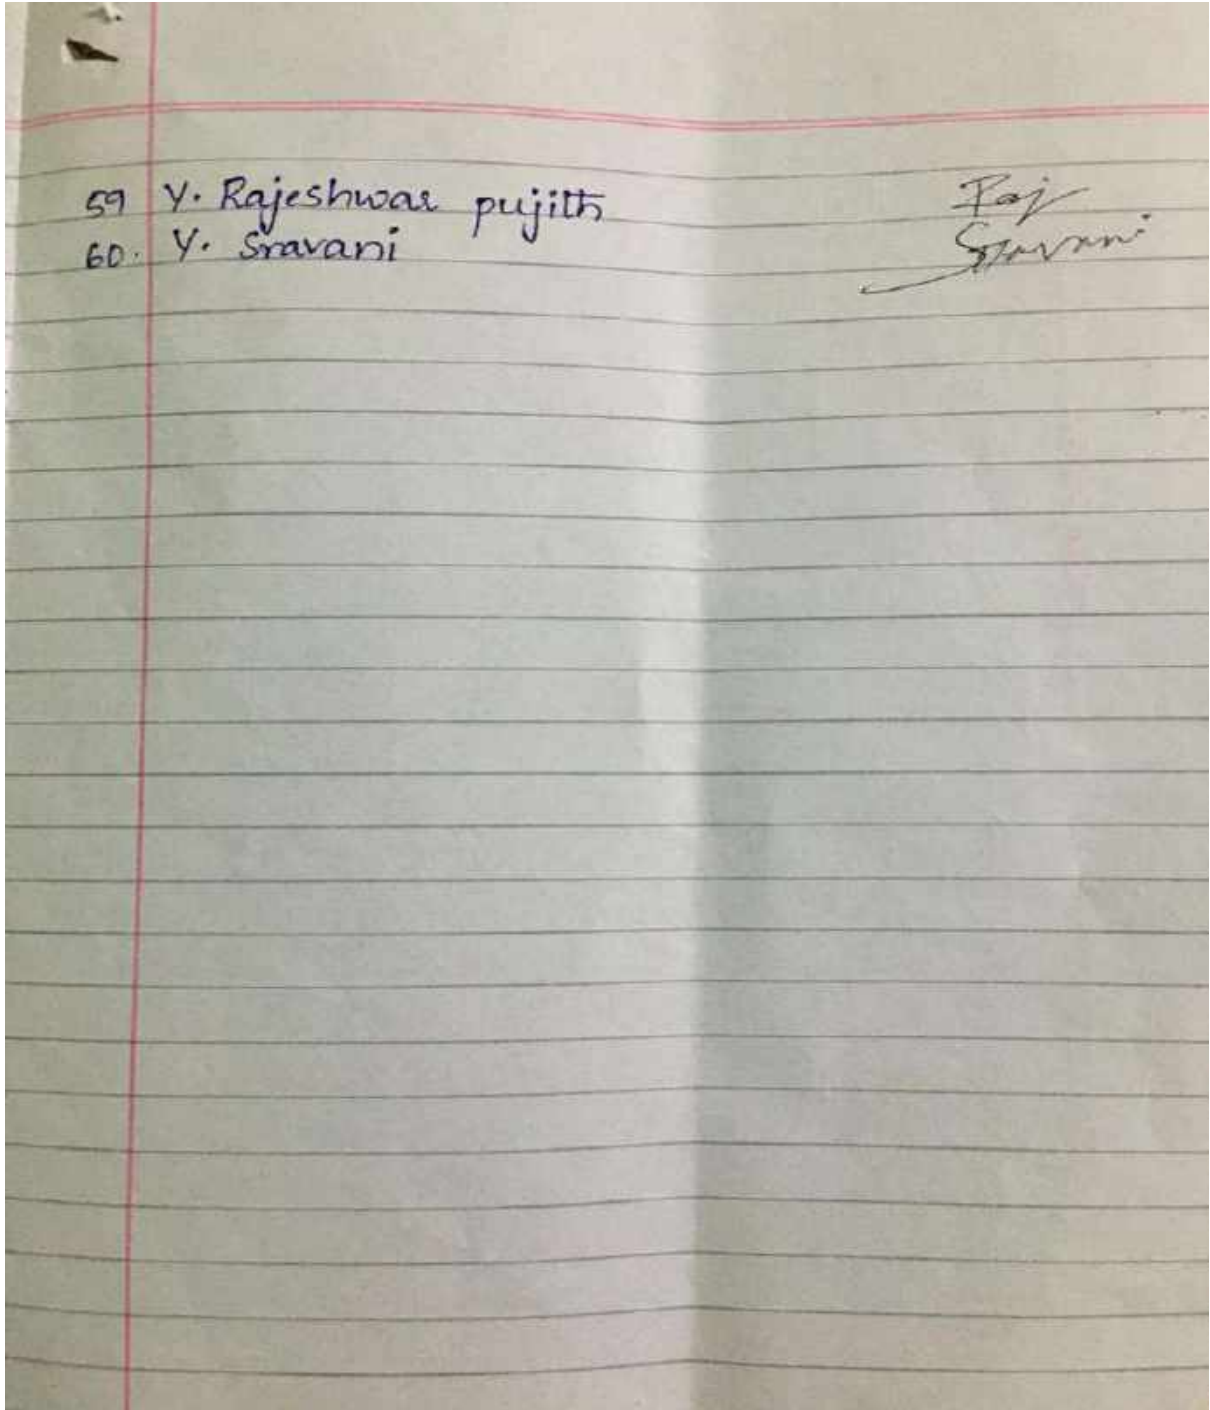 59 Y. Rajeshwar pujith Raj
60. Y. Sravani Sravani